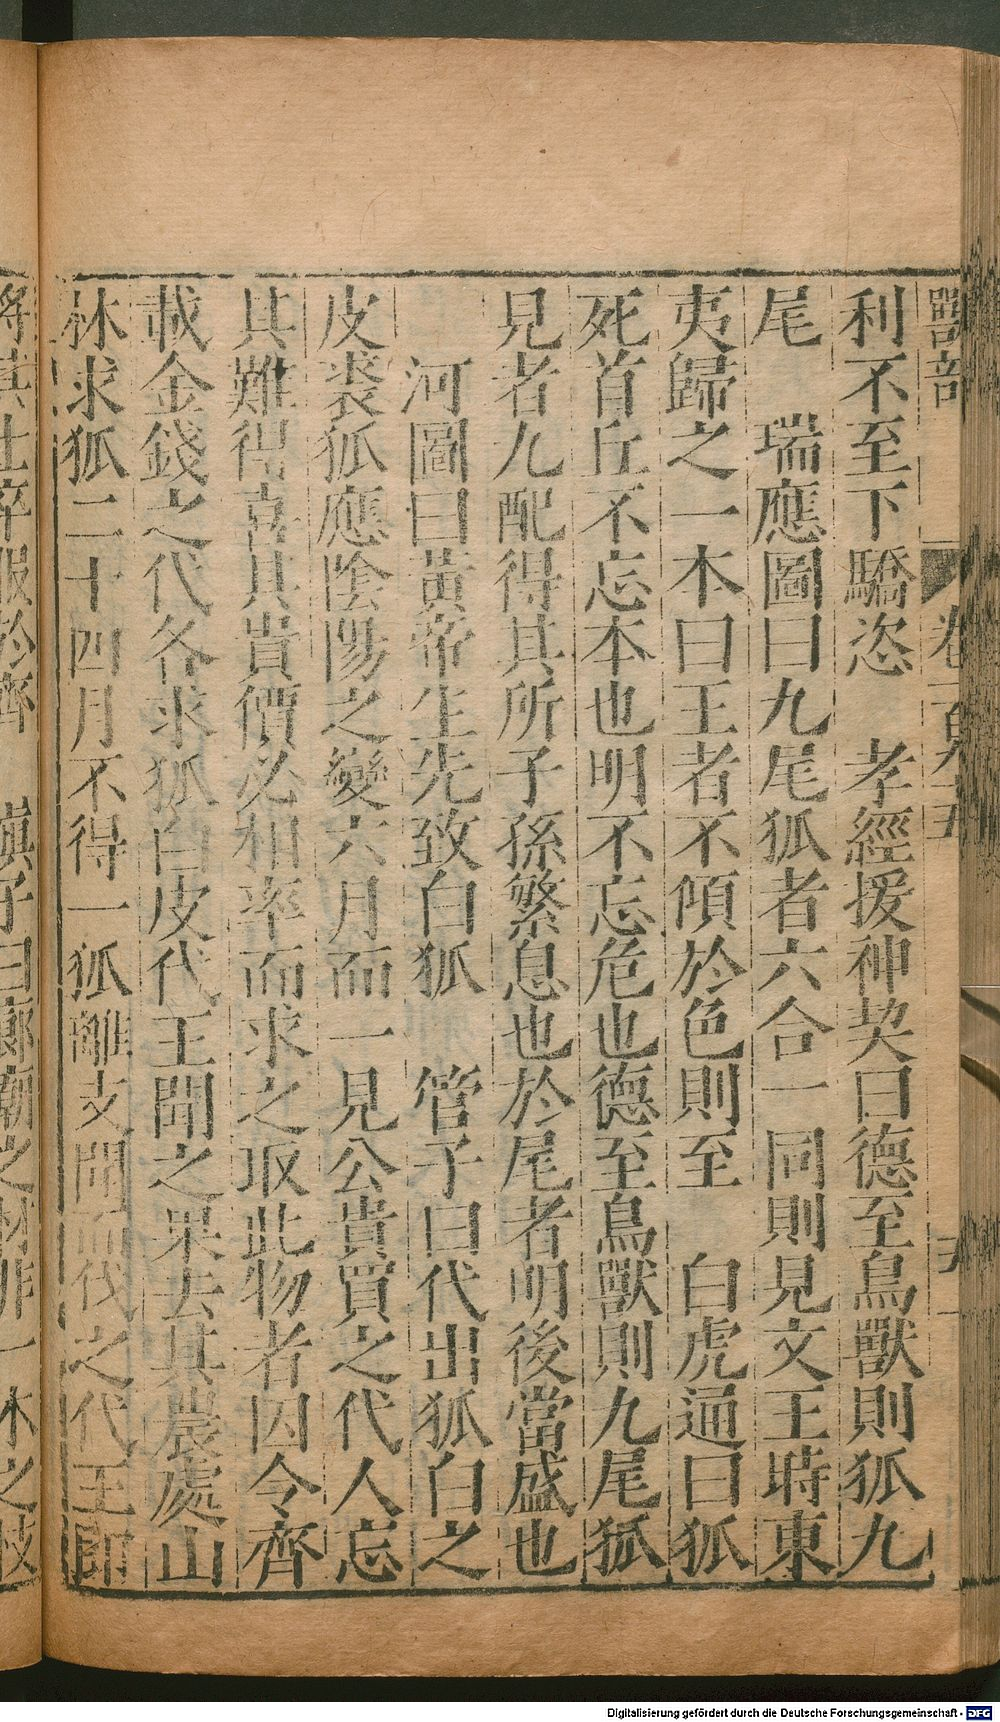 獸部　卷一百九十五
利不至下驕恣　孝經援神契曰德至鳥獸則狐九
尾　瑞應圖曰九尾狐者六合一同則見文王時東
夷歸之一本曰王者不傾於色則至　白虎通曰狐
死首丘不忘本也明不忘危也德至鳥獸則九尾狐
見者九配得其所子孫繁息也於尾者明後當盛也
河圖曰黃帝生先致白狐　管子曰代出狐白之
皮裘狐應陰陽之變六月而一見公貴買之代人忘
其難得喜其貴價必相率而求之取此物者因令齊
載金錢之代各求狐白皮代王聞之果去其農處山
林求狐二十四月不得一狐離支聞而伐之代王即
將其士卒服於齊　慎子曰廊廟之材非一木之枝
Digitalisierung gefördert durch die Deutsche Forschungsgemeinschaft - DFG